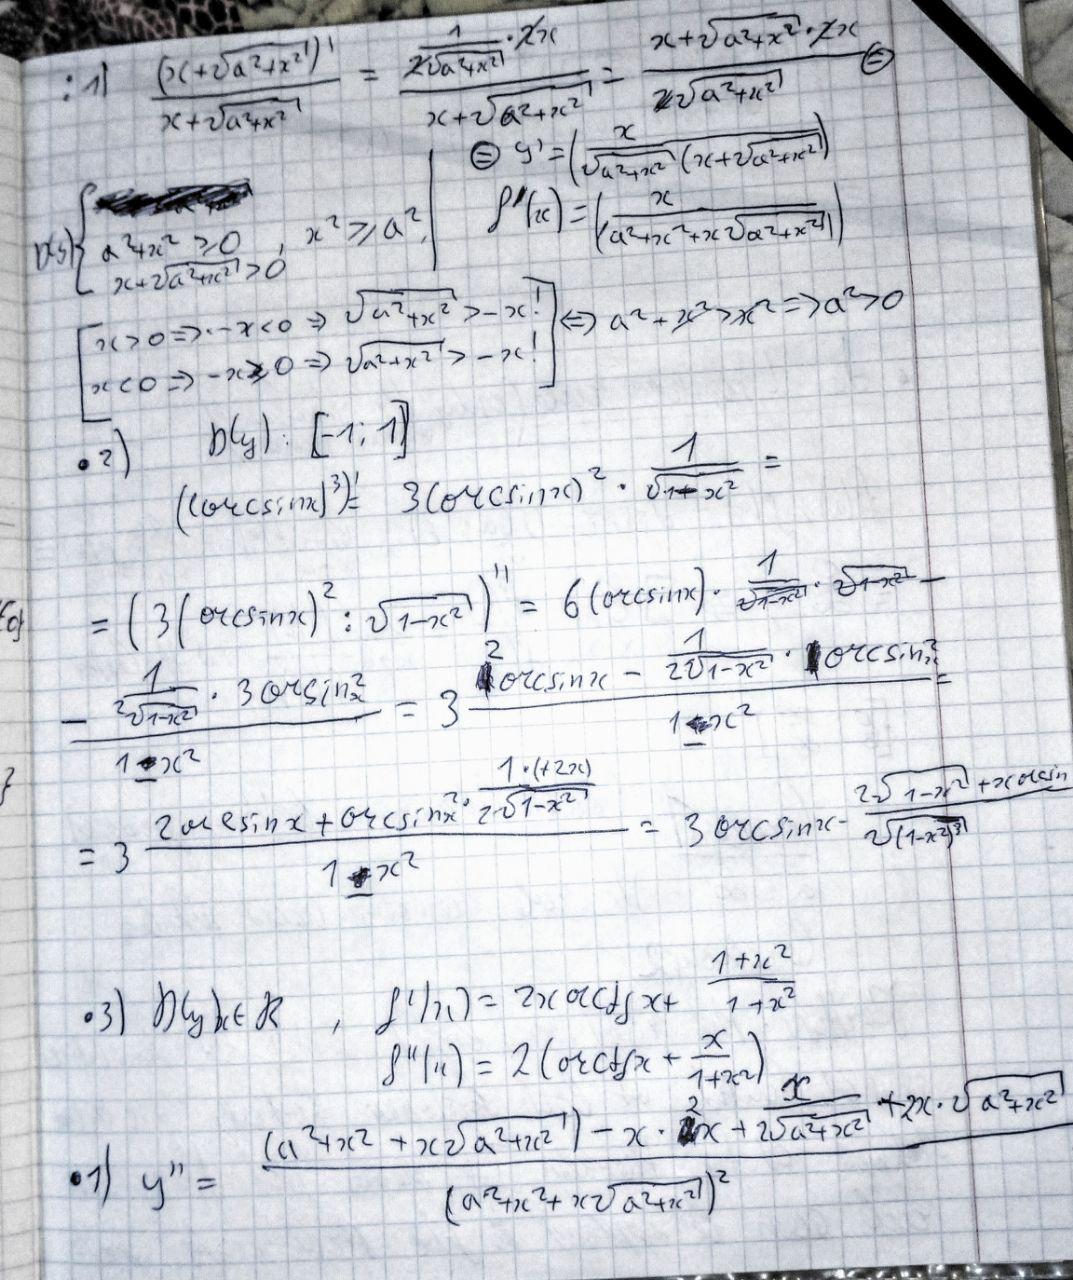 : 1) (x+√(a²+x²))' / (x+√(a²+x²)) = (1/(2√(a²+x²)) · 2x) / (x+√(a²+x²)) = (x+√(a²+x²) · 2x) / (2√(a²+x²)) ⊜
⊜ y' = (x / (√(a²+x²) (x+√(a²+x²))))
D(y) { a²+x² ≥ 0 , x² ≥ a²,
x+√(a²+x²) > 0
f'(x) = (x / (a²+x²+x√(a²+x²)))
[ x>0 ⇒ -x<0 ⇒ √(a²+x²) > -x!
x<0 ⇒ -x≥0 ⇒ √(a²+x²) > -x! ] ⇔ a²+x²>x² ⇒ a²>0
• 2) D(y): [-1; 1]
((arcsinx)³)' = 3(arcsinx)² · 1/√(1-x²) =
= (3(arcsinx)² : √(1-x²))'' = 6(arcsinx) · 1/√(1-x²) · √(1-x²) -
- (1/(2√(1-x²)) · 3arcsin²x) / (1-x²) = 3 (2arcsinx - 1/(2√(1-x²)) · arcsin²x) / (1-x²) =
= 3 (2arcsinx + arcsin²x · (1·(+2x))/(2√(1-x²))) / (1-x²) = 3arcsinx · (2√(1-x²) + xarcsin) / √((1-x²)³)
• 3) D(y) x∈R , f'(x) = 2x arctgx + (1+x²)/(1+x²)
f''(x) = 2(arctgx + x/(1+x²))
• 1) y'' = ((a²+x²+x√(a²+x²)) - x · 2x + x/(2√(a²+x²)) + 2x · √(a²+x²)) / (a²+x²+x√(a²+x²))²